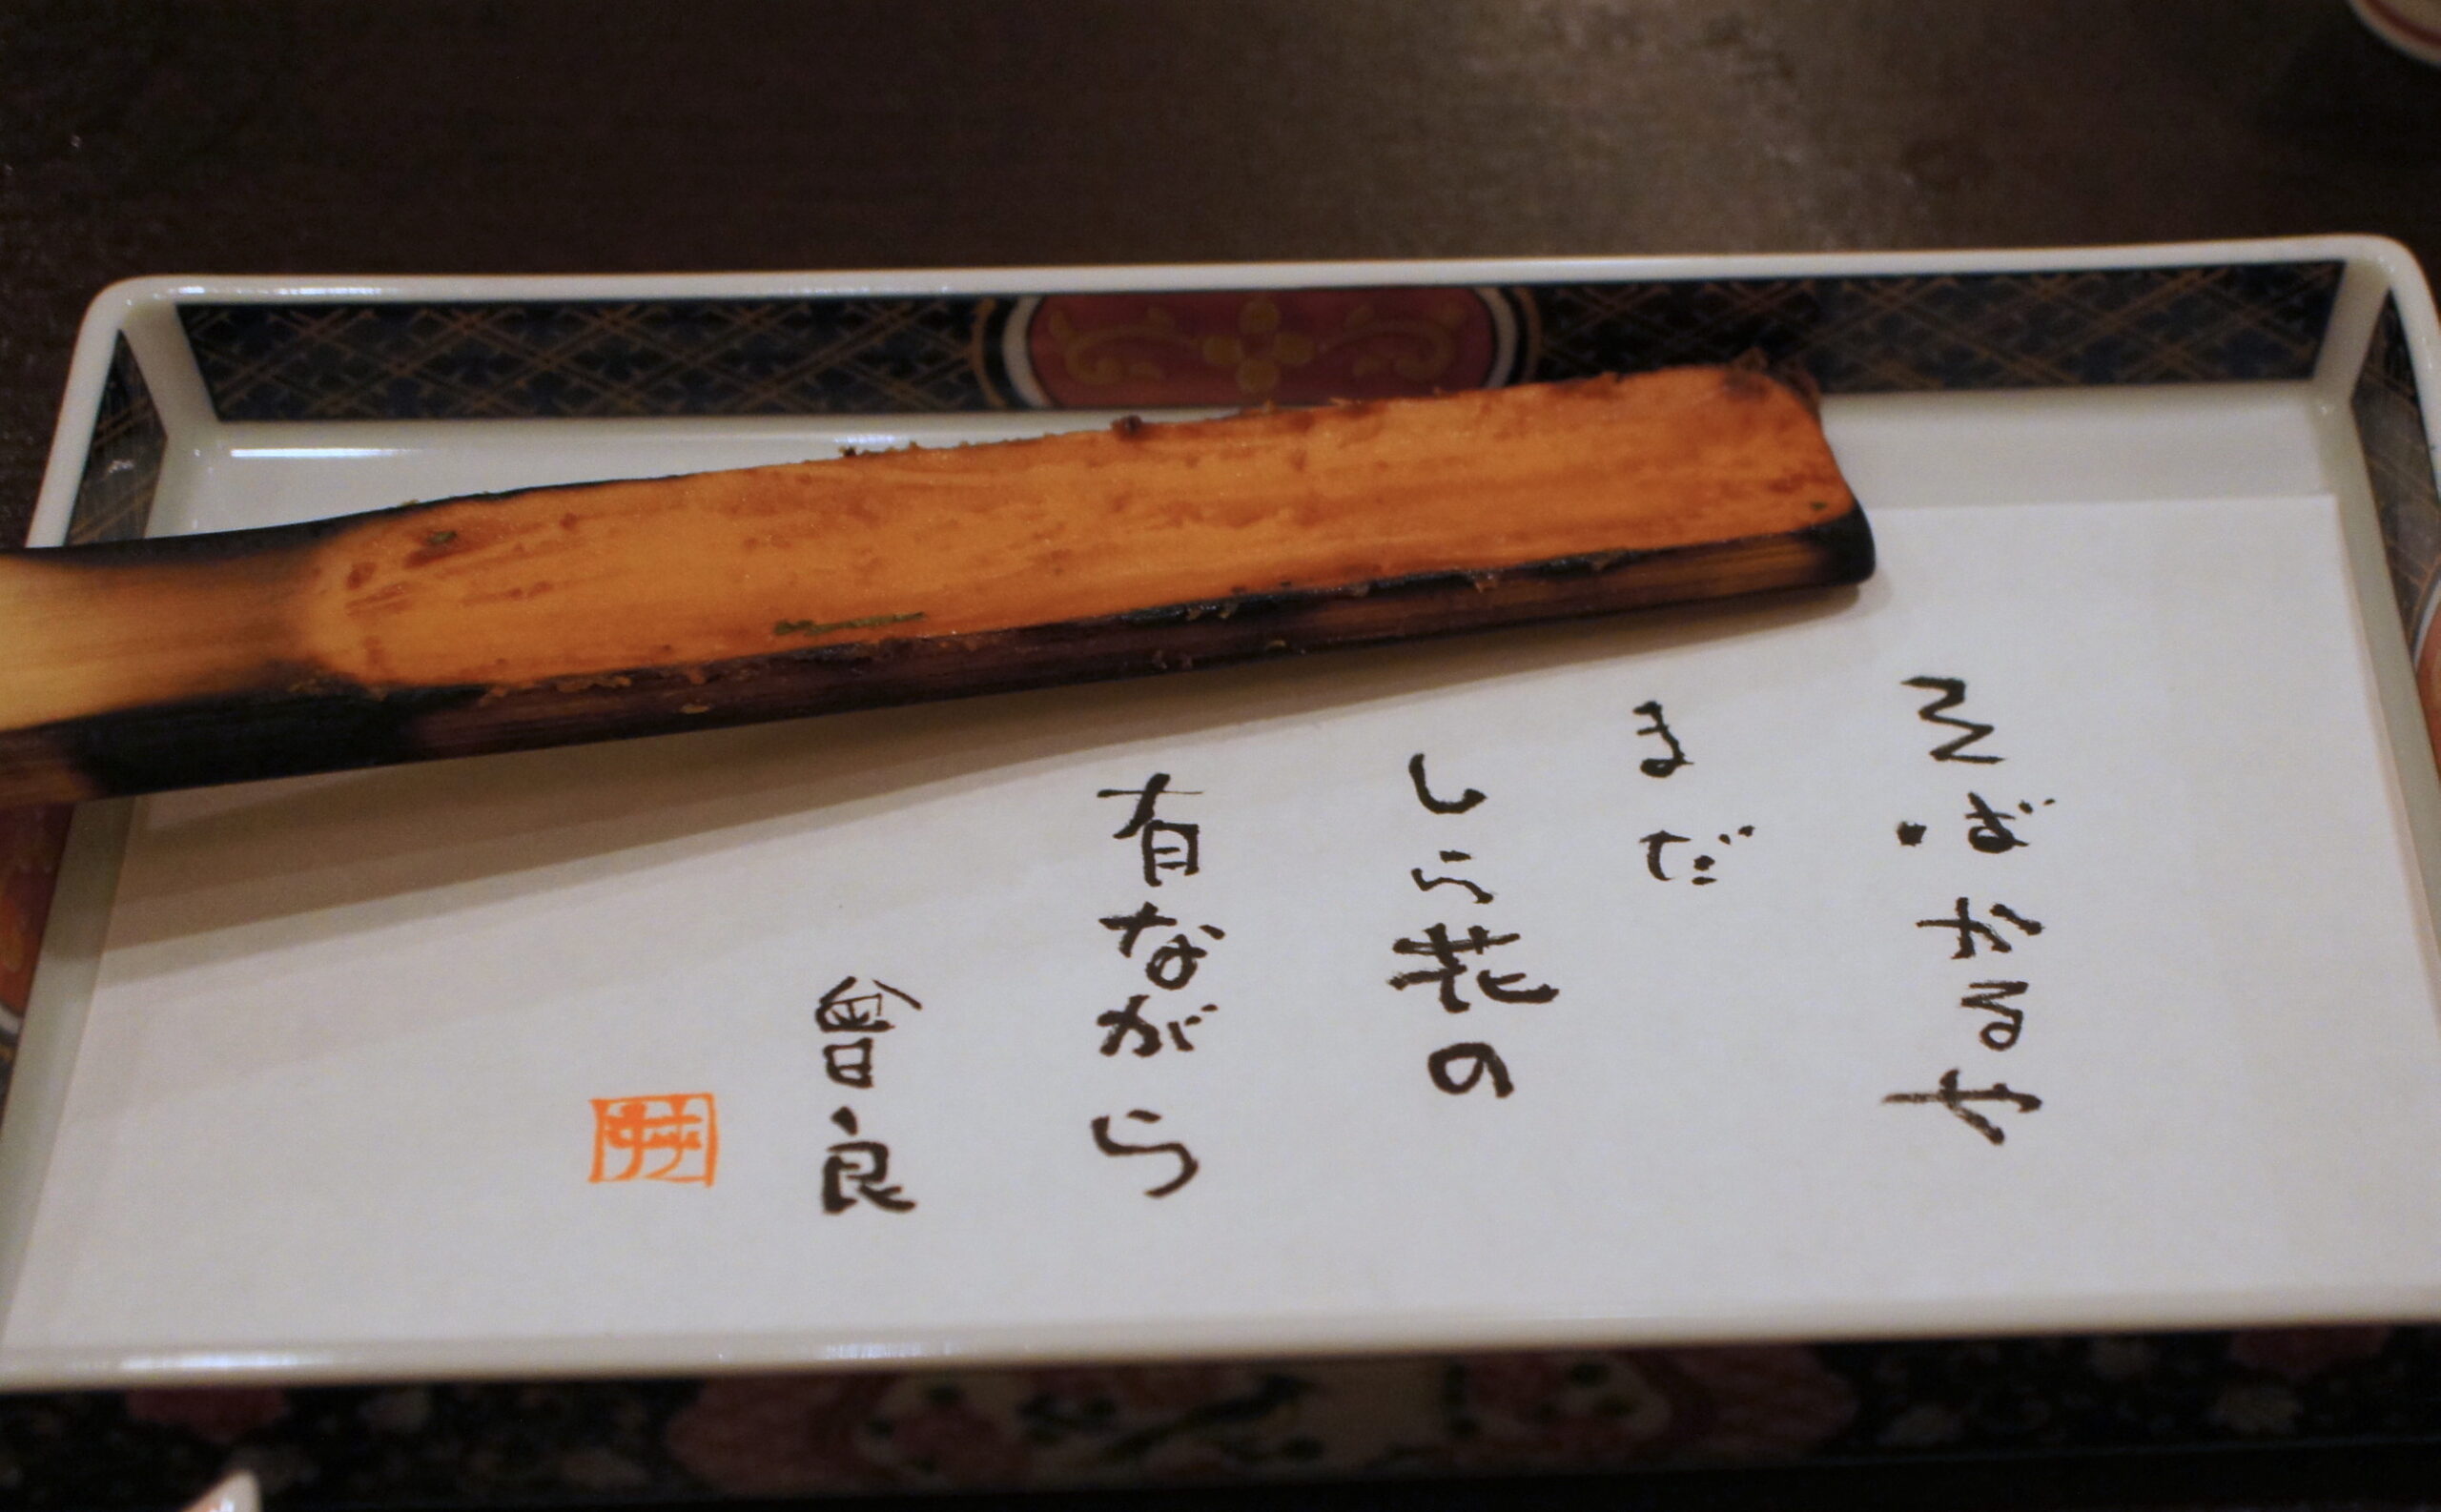 そばかるや
まだ
しら花の
有ながら
曾良